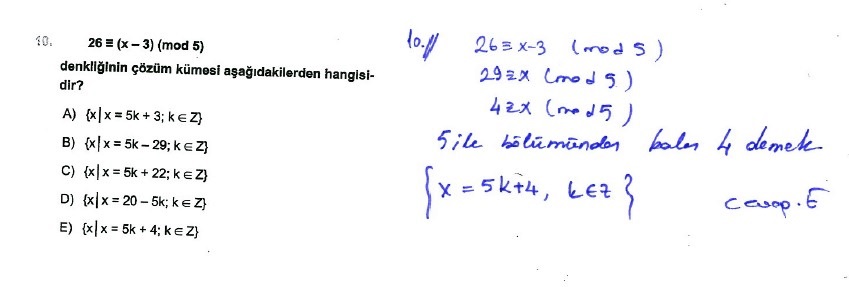 10.
26 ≡ (x – 3) (mod 5)
denkliğinin çözüm kümesi aşağıdakilerden hangisi-
dir?
A) {x|x = 5k + 3; k ∈ Z}
B) {x|x = 5k – 29; k ∈ Z}
C) {x|x = 5k + 22; k ∈ Z}
D) {x|x = 20 – 5k; k ∈ Z}
E) {x|x = 5k + 4; k ∈ Z}
10.//
26 ≡ x-3 (mod 5)
29 ≡ x (mod 5)
4 ≡ x (mod 5)
5 ile bölümünden kalan 4 demek
{x = 5k+4, k∈Z}
Cevap. E